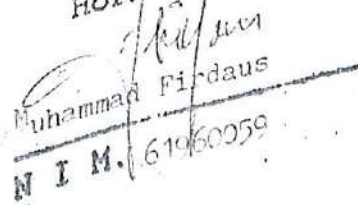 Muhammad Firdaus
N I M. 61960059